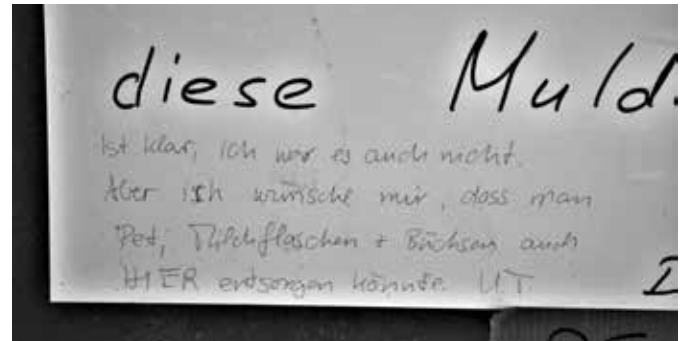 diese Muld
Ist klar, ich war es auch nicht.
Aber ich wünsche mir, dass man
Pet, Milchflaschen + Büchsen auch
HIER entsorgen könnte. U.T.